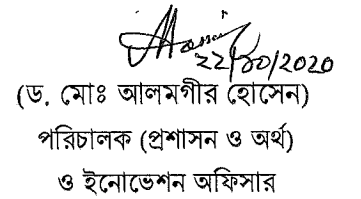 ২২/১০/২০২০
(ড. মোঃ আলমগীর হোসেন)
পরিচালক (প্রশাসন ও অর্থ)
ও ইনোভেশন অফিসার